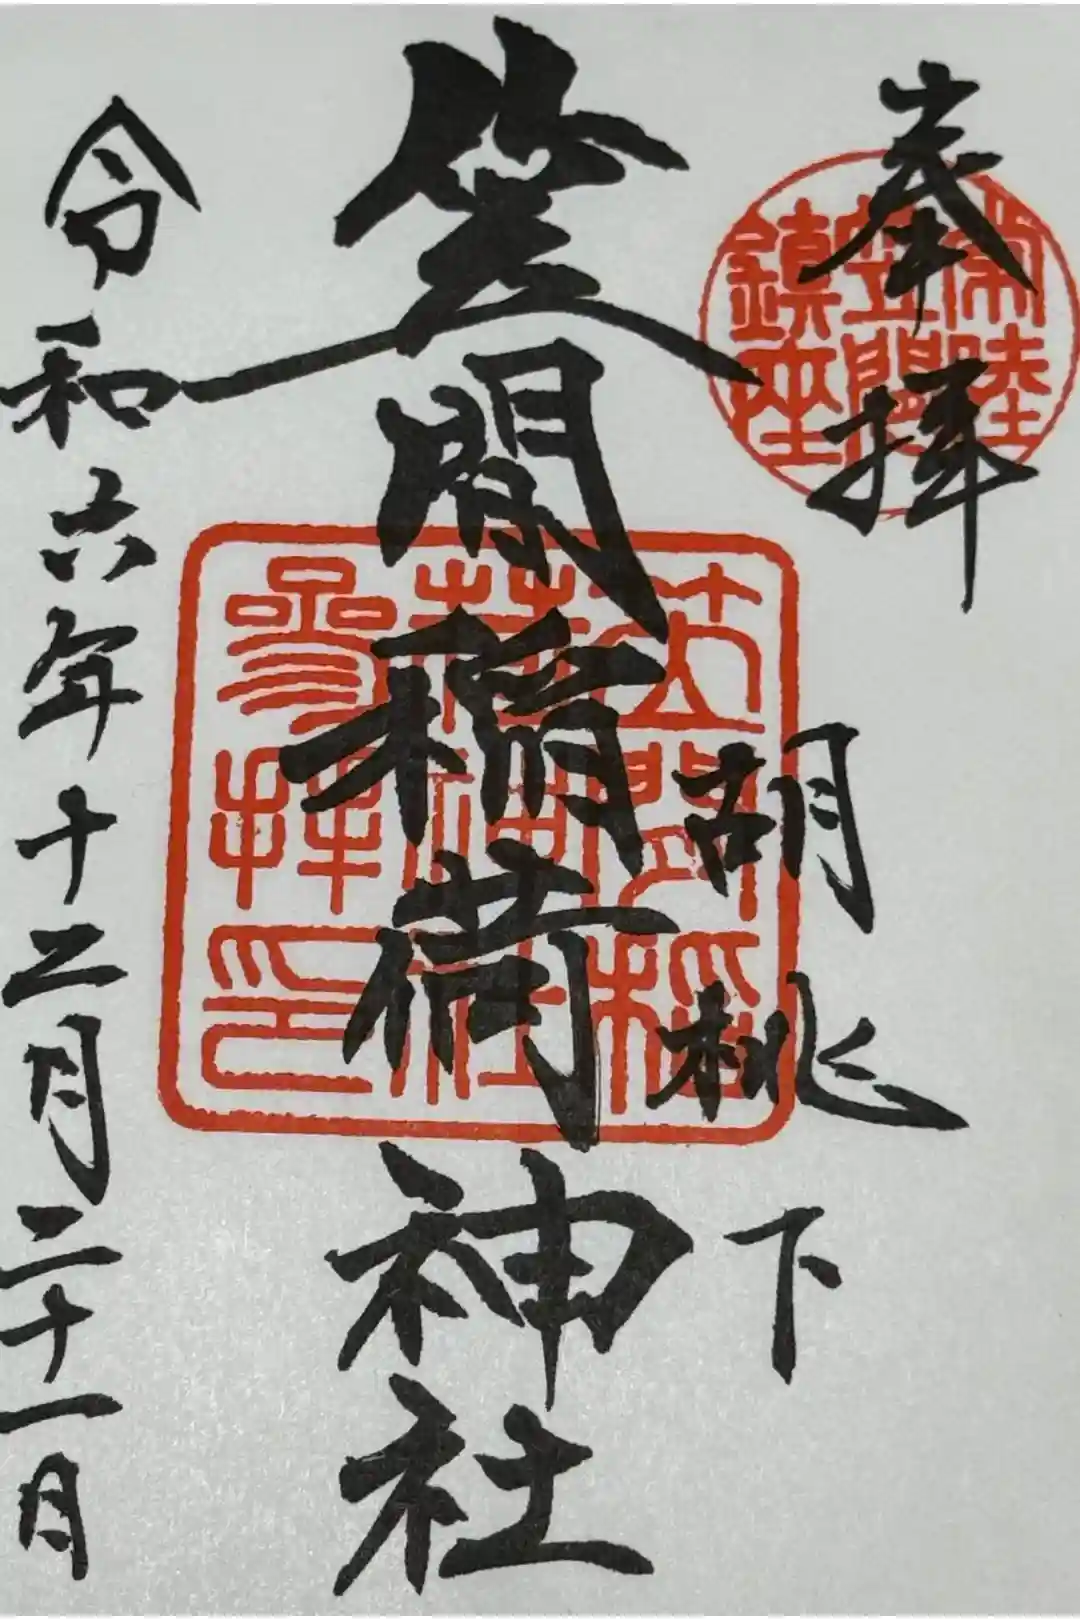 奉拝
常陸
笠間
鎮座
胡桃下
笠間稲荷神社
笠間稲
荷神社
參拝印
令和六年十二月二十一日